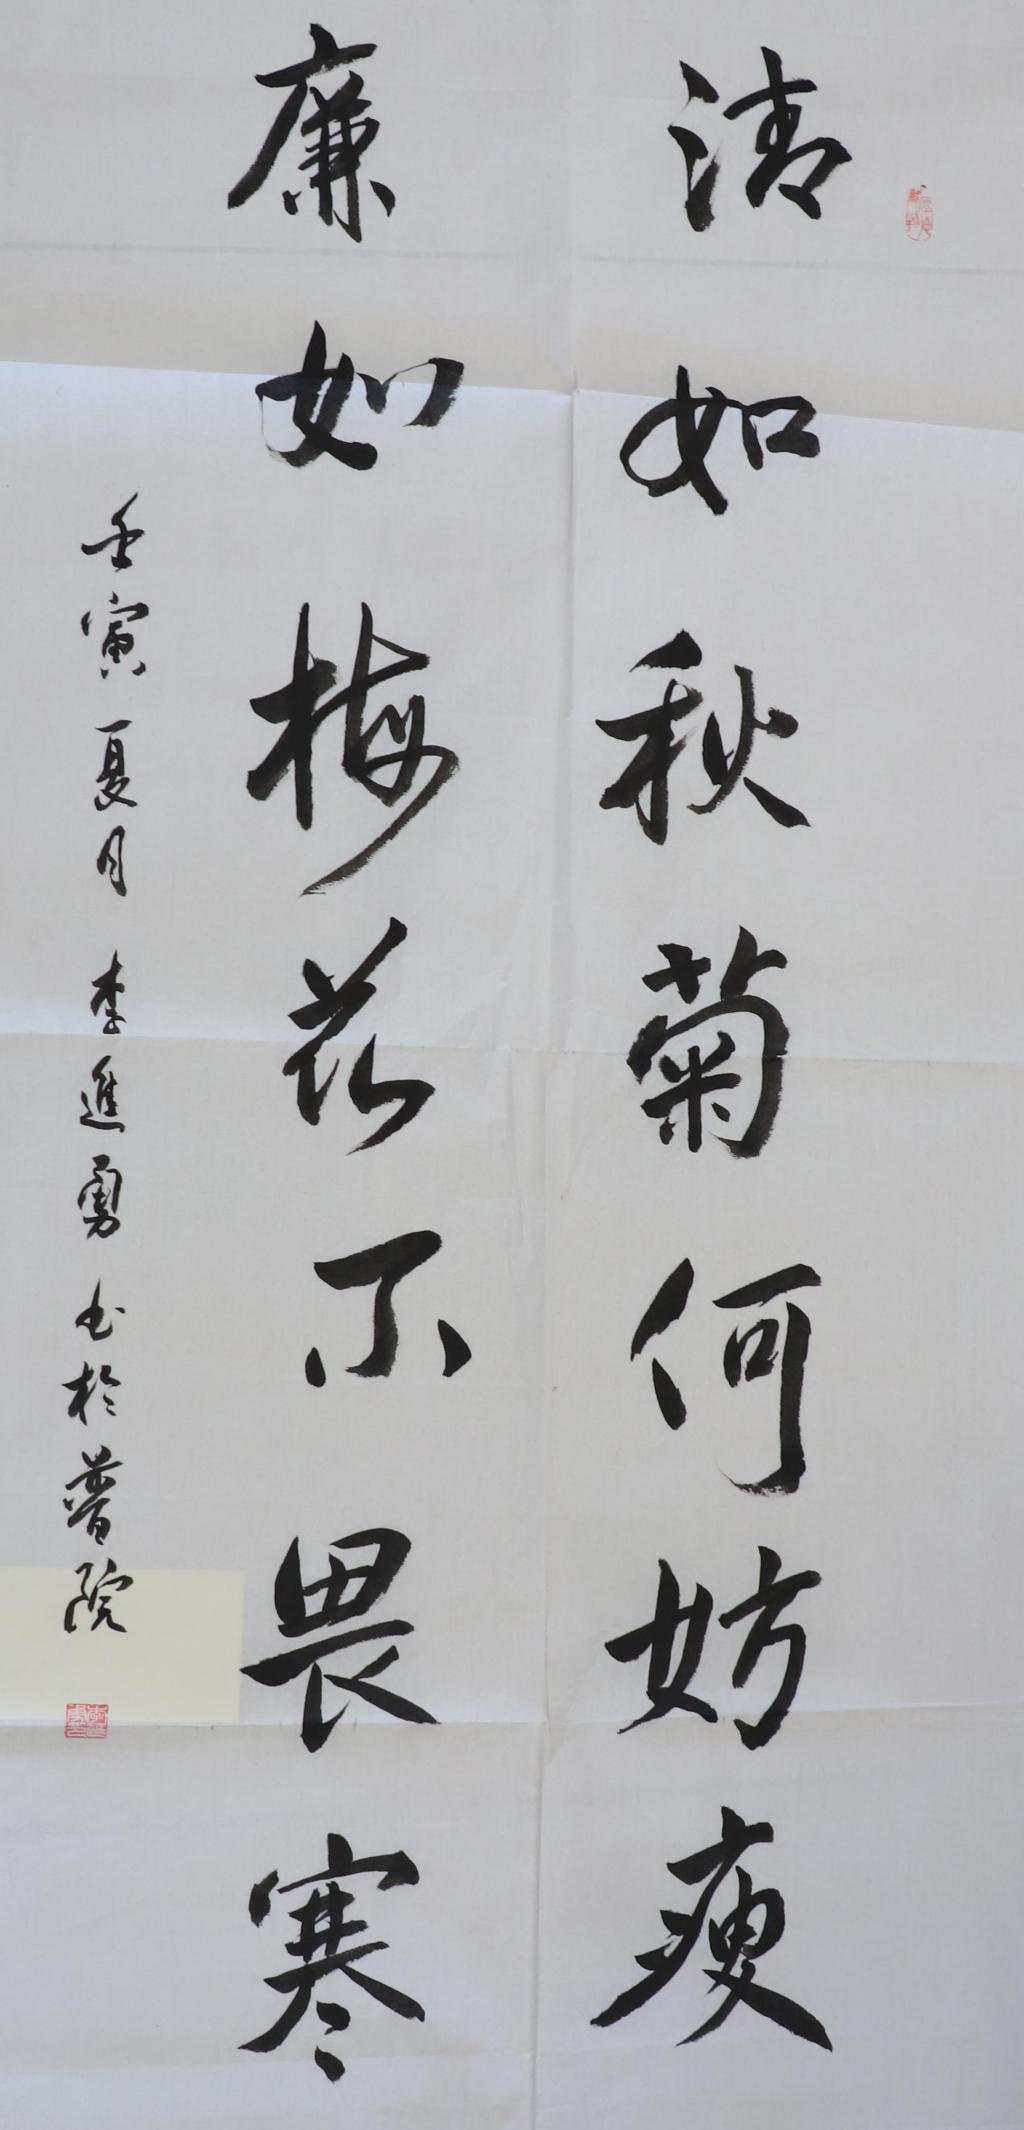 清如秋菊何妨瘦
廉如梅花不畏寒
壬寅夏月 李進勇书於普院